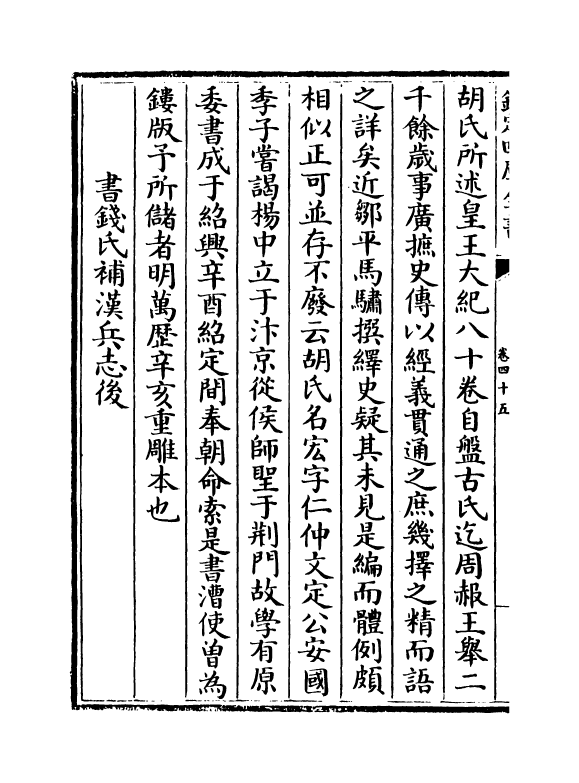 欽定四庫全書
卷四十五
胡氏所述皇王大紀八十卷自盤古氏迄周赧王舉二
千餘歲事廣摭史傳以經義貫通之庶幾擇之精而語
之詳矣近鄒平馬驌撰繹史疑其未見是編而體例頗
相似正可並存不廢云胡氏名宏字仁仲文定公安國
季子嘗謁楊中立于汴京從侯師聖于荆門故學有原
委書成于紹興辛酉紹定間奉朝命索是書漕使曽為
鏤版予所儲者明萬歷辛亥重雕本也
書錢氏補漢兵志後